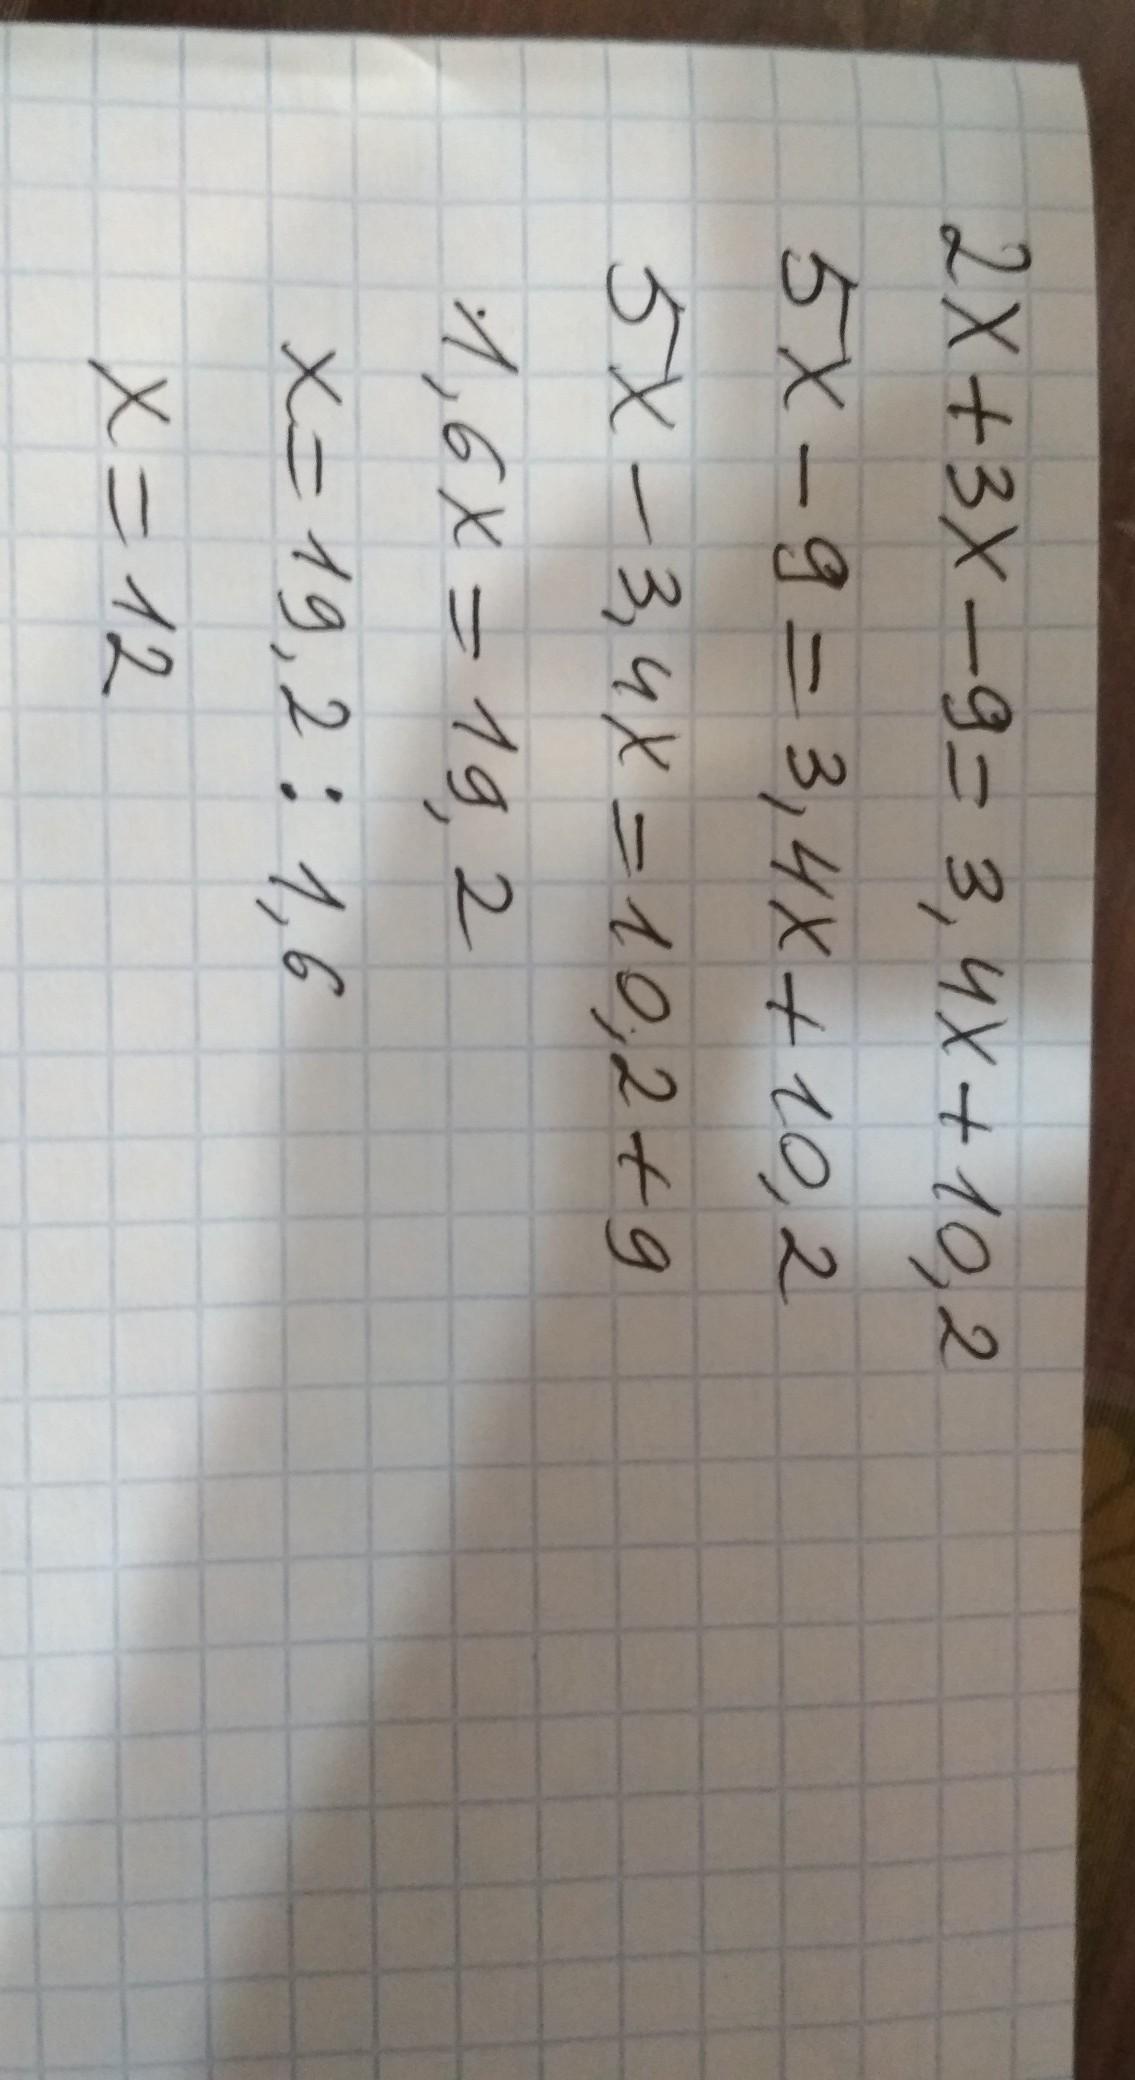 2x+3x-9=3,4x+10,2
5x-9=3,4x+10,2
5x-3,4x=10,2+9
1,6x=19,2
x=19,2:1,6
x=12